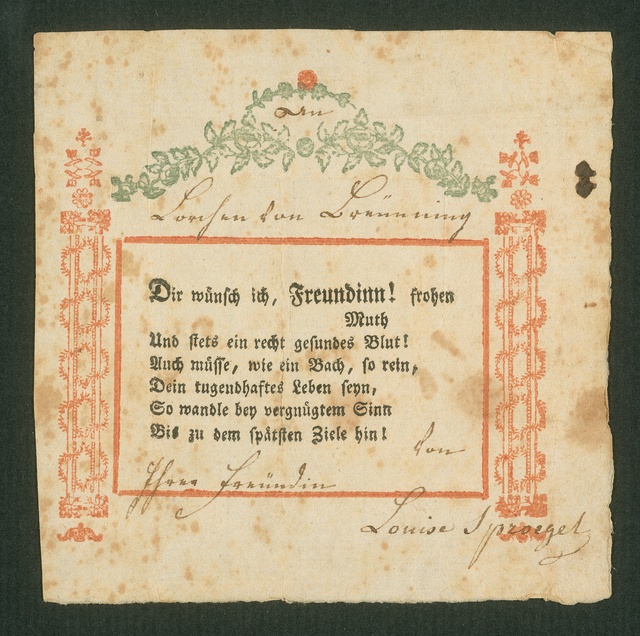 An
Lorchen von Breünning
Dir wünsch ich, Freundinn! frohen
Muth
Und stets ein recht gesundes Blut!
Auch müsse, wie ein Bach, so rein,
Dein tugendhaftes Leben seyn,
So wandle bey vergnügtem Sinn
Bis zu dem spätsten Ziele hin!
Von
Ihrer Freündin
Louise Sproegel